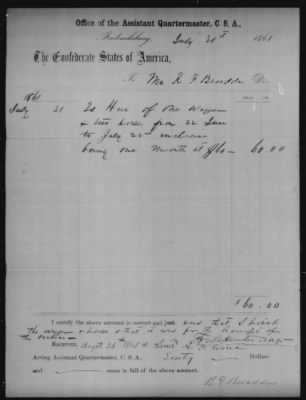 Office of the Assistant Quartermaster, C. S. A.,
Fredericksburg, July 21st 1861
The Confederate States of America,
To Mr R F Broaddus Dr.
1861
July 21 To Hire of One Waggon
& two horses from 22 June
to July 22nd inclusive
being one Month at $60– 60.00
$60.00
I certify the above account is correct and just, and that I hired
the wagon & horses & that it was for the
the service
Received, Augt 26th 1861 of
Acting Assistant Quartermaster, C. S. A., Sixty Dollars
and cents in full of the above amount.
R F Broaddus